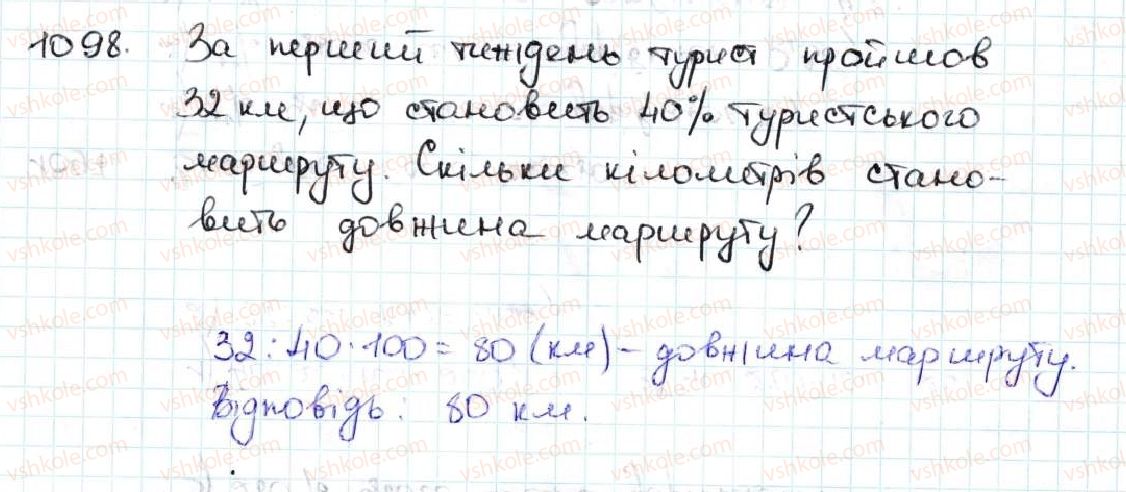 1098. За перший тиждень турист пройшов
32 км, що становить 40% туристського
маршруту. Скільки кілометрів стано-
вить довжина маршруту?
32 : 40 · 100 = 80 (км) - довжина маршруту.
Відповідь: 80 км.